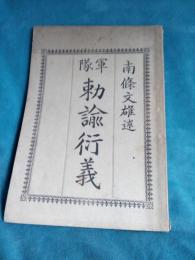 南條文雄述
軍隊
勅諭衍義